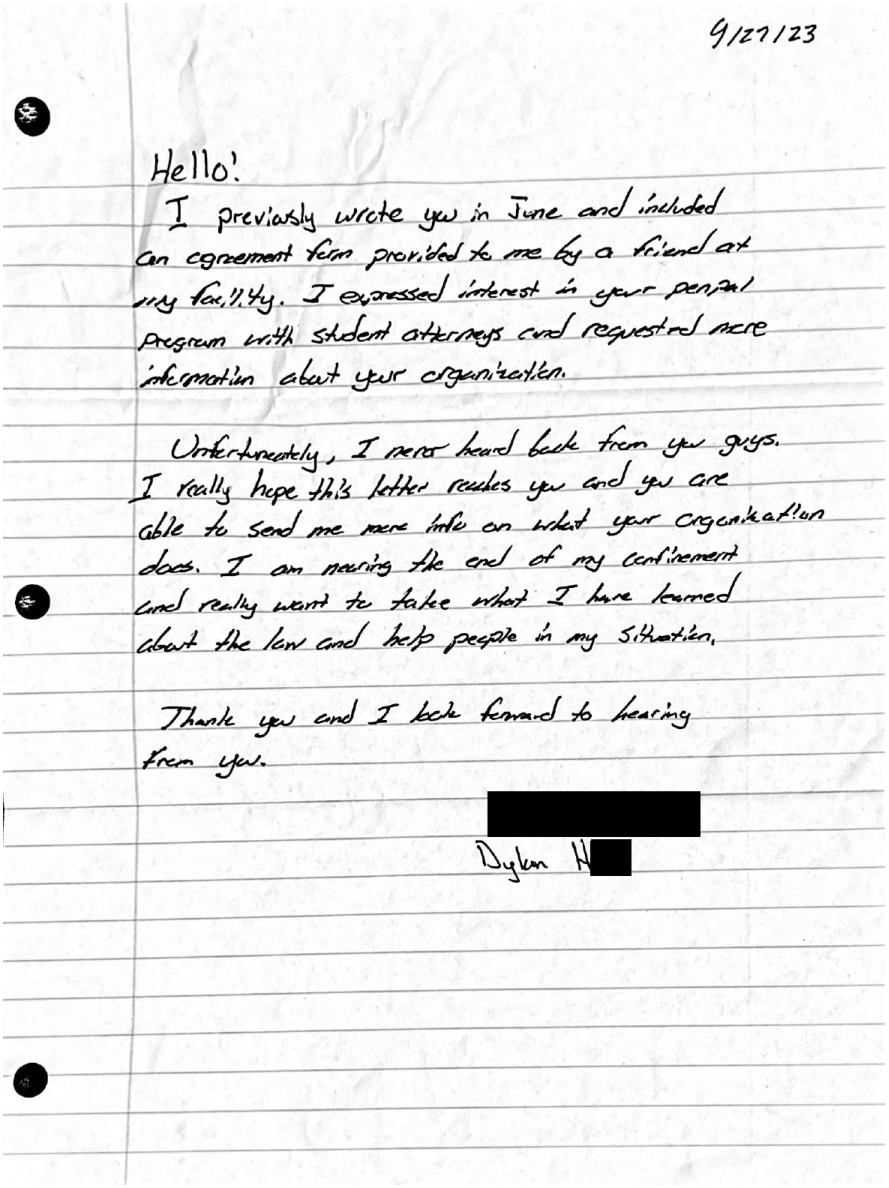 9/27/23
Hello!
I previously wrote you in June and included
an agreement form provided to me by a friend at
my facility. I expressed interest in your penpal
program with student attorneys and requested more
information about your organization.
Unfortunately, I never heard back from you guys.
I really hope this letter reaches you and you are
able to send me more info on what your organization
does. I am nearing the end of my confinement
and really want to take what I have learned
about the law and help people in my situation.
Thank you and I look forward to hearing
from you.
Dylan H